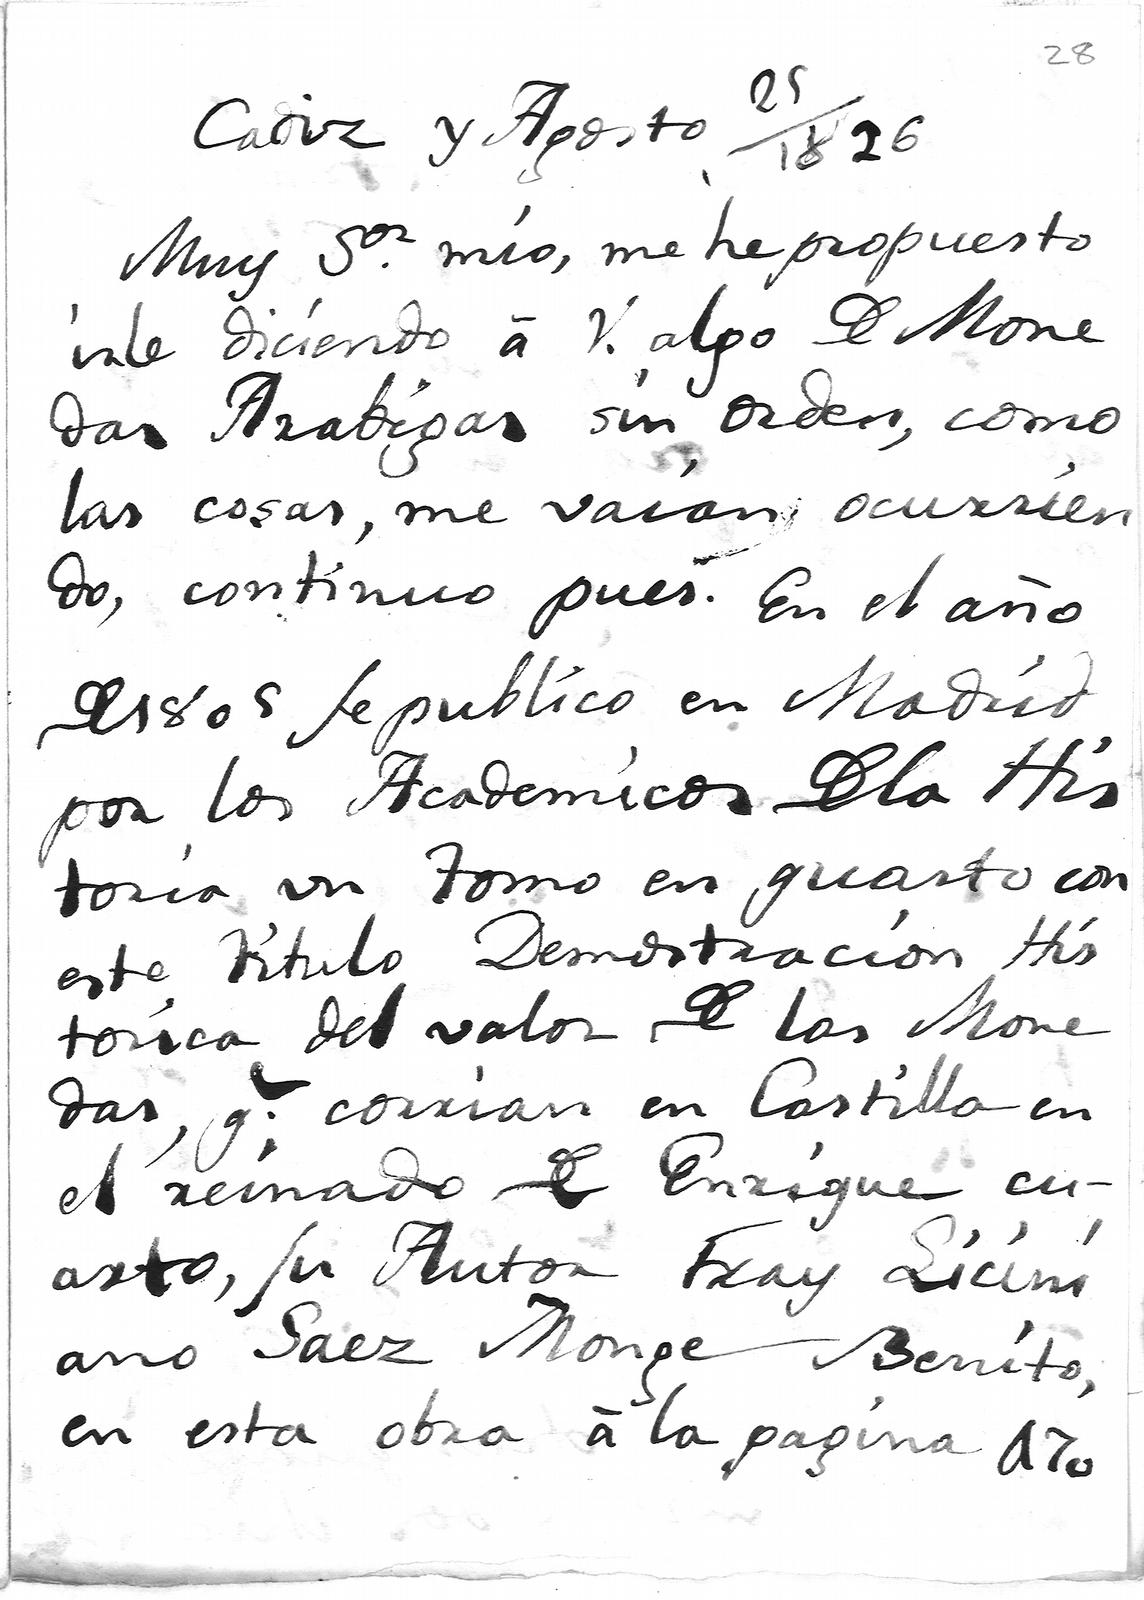 28
Cadiz y Agosto 25/1826
Muy Sor. mio, me he propuesto
irle diciendo á V. algo De Mone
das Arabigas sin orden, como
las cosas, me vaian ocurrien
do, continuo pues. En el año
De 1805 se publico en Madrid
por los Academicos De la His
toria un Tomo en quarto con
este titulo Demostracion His
torica del valor De las Mone
das, q.e corrian en Castilla en
el reinado De Enrique cu-
arto, su Autor Fray Licini
ano Saez Monge Benito,
en esta obra á la pagina